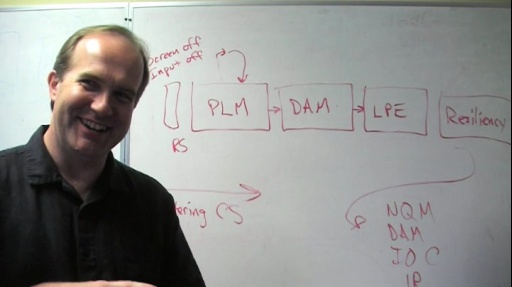 Screen off
Input off
PLM
DAM
LPE
Resiliency
RS
ering CS
NQM
DAM
IOC
IP